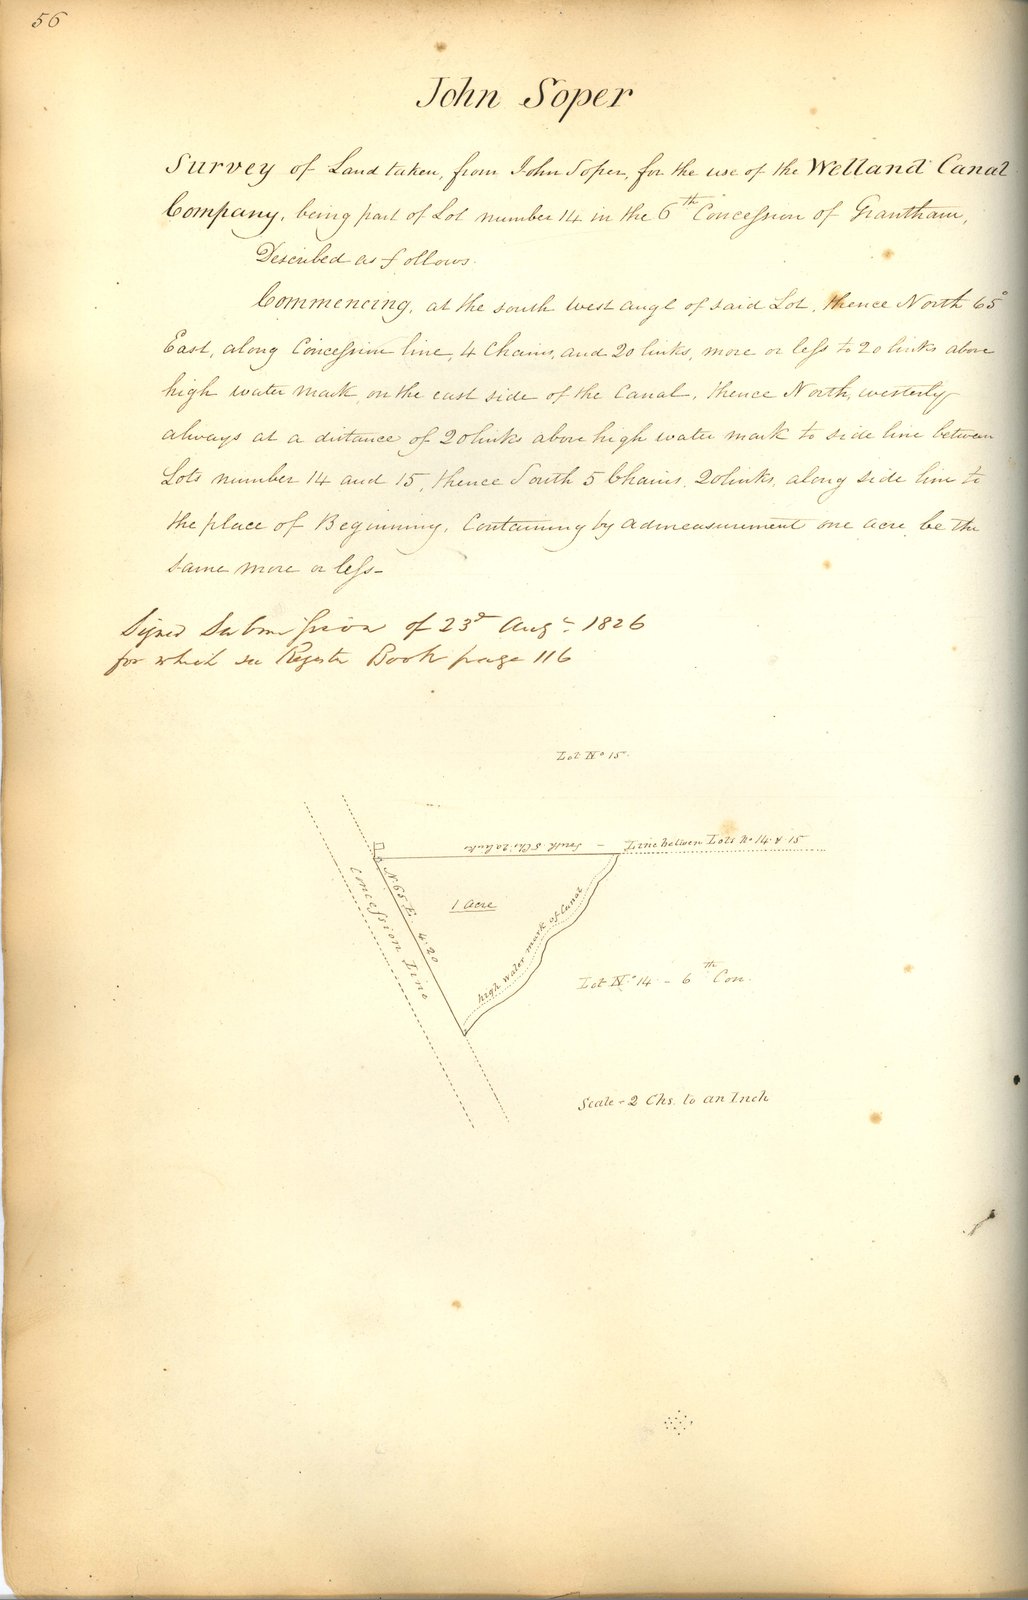 56
John Soper
Survey of Land taken, from John Soper, for the use of the Welland Canal
Company, being part of Lot number 14 in the 6th Concession of Grantham,
Described as follows.
Commencing, at the south west angl of said Lot, thence North 65°
East, along Concession line, 4 Chains, and 20 links, more or less to 20 links above
high water mark on the east side of the Canal, thence North, westerly
always at a distance of 20 links above high water mark to side line between
Lots number 14 and 15, thence South 5 Chains, 20 links, along side line to
the place of Beginning, Containing by admeasurement one acre, be the
same more or less—
Signed Submission of 23d Augt 1826
for which see Register Book page 116
Lot No 15.
South 5 Chs 20 links – Line between Lots No 14 & 15
N 65 E. 4.20
Concession Line
1 Acre
high Water mark of Canal
Lot No 14 – 6th Con.
Scale – 2 Chs. to an Inch